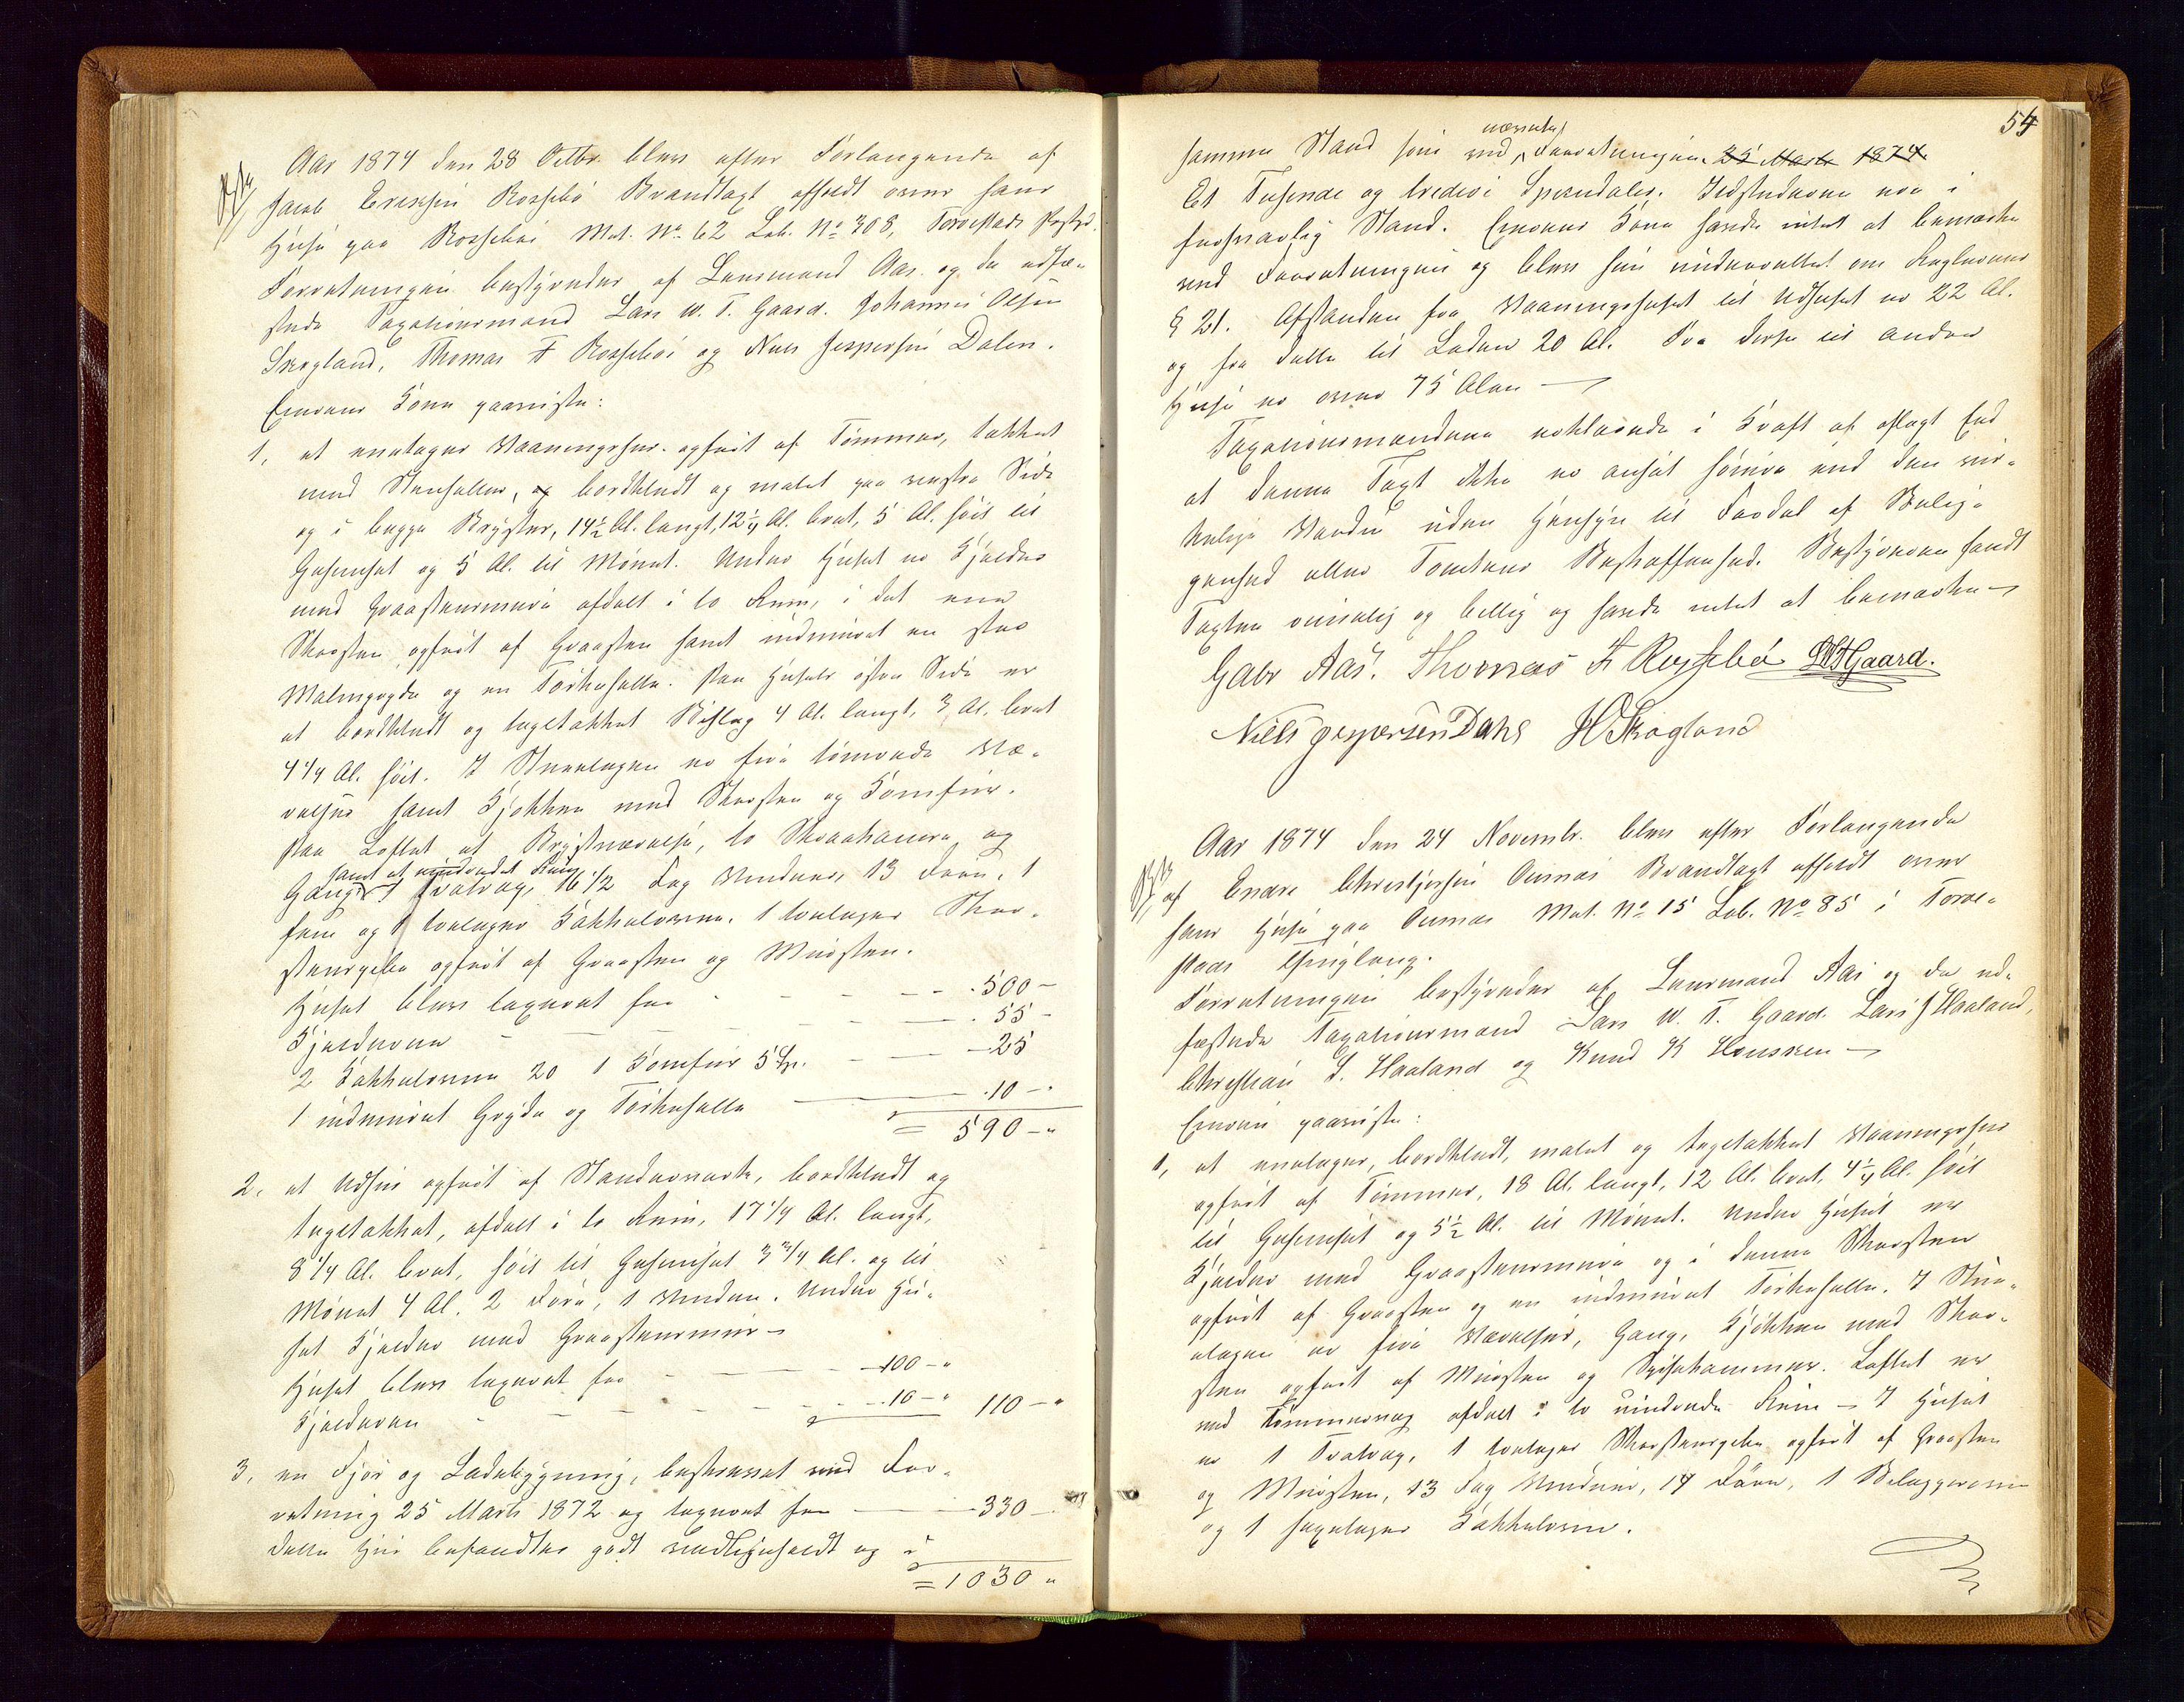 Aar 1874 den 28 Octbr. blev efter Forlangende af
Jacob Eriksen Rossebø Brandtaxt afholdt over hans
Huse paa Rossebø Mat. No. 62 Løb. No 308, Torvestads Præstgd.
Forretningen bestyredes af Lensmand Aas. og de udfæ-
stede Taxationsmænd Lars W. T. Gaard. Johannes Olsen
Skogland, Thomas F Rossebø og Niels Jespersen Dalen.
Eierens Kone paaviste:
1, et enetages Vaaningshus opført af Tømmer, takket
med Stenheller, og bordklædt og malet paa vestre Side
og i begge Bryster, 14½ Al. langt, 12¼ Al. bredt, 5 Al. høit til
Gesimset og 5 Al. til Mønet. Under Huset er Kjælder
med Graastensmure afdelt i to Rum, i det ene
Skorsten opført af Graasten samt indmuret en stor
Malmgryde og en Tørkehelle. Paa Husets østre Side er
et bordklædt og tagtækket Bislag 4 Al. langt, 3 Al. bredt
4 1/4 Al. høit. I Stueetagen er fire tømrede Væ-
relser samt Kjøkken med Skorsten og Komfur.
Paa Loftet et Brystværelse, to Skraakamre og
samt et uindredet Rum
Gang. 1 Svalvæg, 16 1/2 Fag Vinduer, 13 Døre, 1
fem og 1 toetages Kakkelovne. 1 toetages Skor-
stenspibe opført af Graasten og Mursten.
Huset blev taxeret for - - - 500 -
Kjælderen - - - 55 -
2 Kakkelovne 20 1 Komfur 5 Sp. - - - 25
1 indmuret Gryde og Tørkehelle - 10 -
= 590 - "
2. et Udhus opført af Standerværk, bordklædt og
tagtækket, afdelt i to Rum, 17 1/4 Al. langt,
8 1/4 Al. bredt, høit til Gesimset 3 3/4 Al. og til
Mønet 4 Al. 2 Døre, 1 Vindue. Under Hu-
set Kjælder med Graastensmur -
Huset blev taxeret for - - - 100 - "
Kjælderen - - - 10 - " 110 - "
3, en Fjøs og Ladebygning, beskrevet ved For-
retning 25 Marts 1872 og taxeret for - 330 -
dette Hus befandtes godt vedligeholdt og i
= 1030 "
54
samme Stand som ved nævnte Forretningen 25 Marts 1874.
Et Tusende og tredive Speciedaler. Ildstederne var i
forsvarlig Stand. Eierens Kone havde intet at bemærke
ved Forretningen og blev hun underrettet om Reglernes
§ 21. Afstanden fra Vaaningshuset til Udhuset er 22 Al.
og fra dette til Laden 20 Al. Fra disse til andre
Huse er over 75 Alen -
Taxationsmændene erklærede i Kraft af aflagt Eed
at denne Taxt ikke er ansat høiere end den vir-
kelige Værdi uden Hensyn til Fordel af Belig-
genhed eller Tomtens Beskaffenhed. Bestyreren fandt
Taxten rimelig og billig og havde intet at bemærke -
Gabr Aas. Thomas F Rossebø LWTGaard.
Niels Jespersen Dahle JO Skogland
Aar 1874 den 24 Novembr. blev efter Forlangende
af Enare Christjersen Osmas Brandtaxt afholdt over
hans Huse paa Osmas Mat. No 15 Løb. No 85 i Torve-
stads Thinglaug.
Forretningen bestyredes af Lensmand Aas og de ud-
fæstede Taxationsmænd Lars W. T. Gaard. Lars J Haaland,
Christian L. Haaland og Knud K Housken -
Eieren paaviste:
1, et enetages, bordklædt, malet og tagtækket Vaaningshus
opført af Tømmer, 18 Al. langt, 12 Al. bredt, 4¼ Al. høit
til Gesimset og 5½ Al. til Mønet. Under Huset er
Kjælder med Graastensmure og i denne Skorsten
opført af Graasten og en indmuret Tørkehelle. I Stue-
etagen er fire Værelser, Gang, Kjøkken med Skor-
sten opført af Mursten og Spisekammer. Loftet er
ved Tømmervæg afdelt i to uindrede Rum - I Huset
er 1 Svalvæg, 1 toetages Skorstenspibe opført af Graasten
og Mursten, 13 Fag Vinduer, 14 Døre, 1 Bilæggerovn
og 1 fuldtages Kakkelovn.